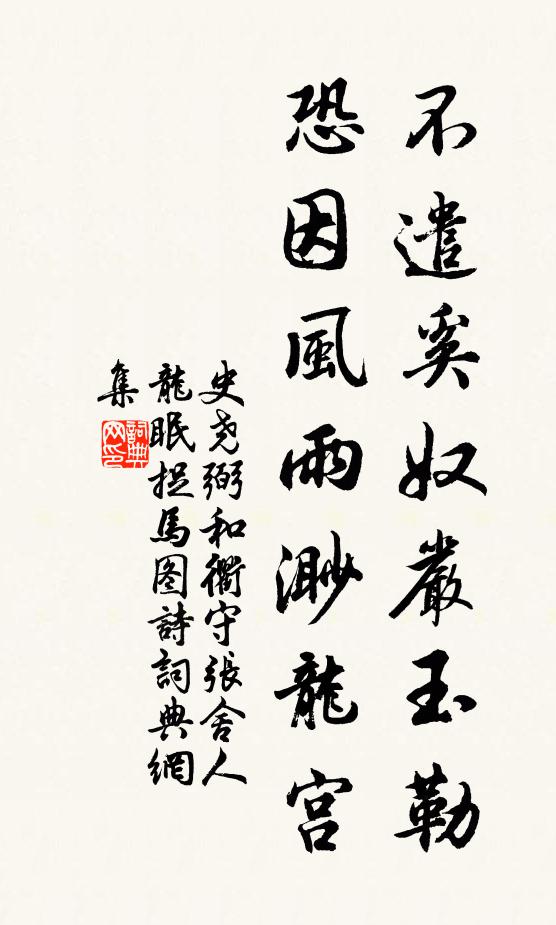 不遣奚奴嚴玉勒
恐因風雨渺龍宮
史尧弼和衢守張舍人
龍眠捉馬图詩詞典網
集
詞典
网印